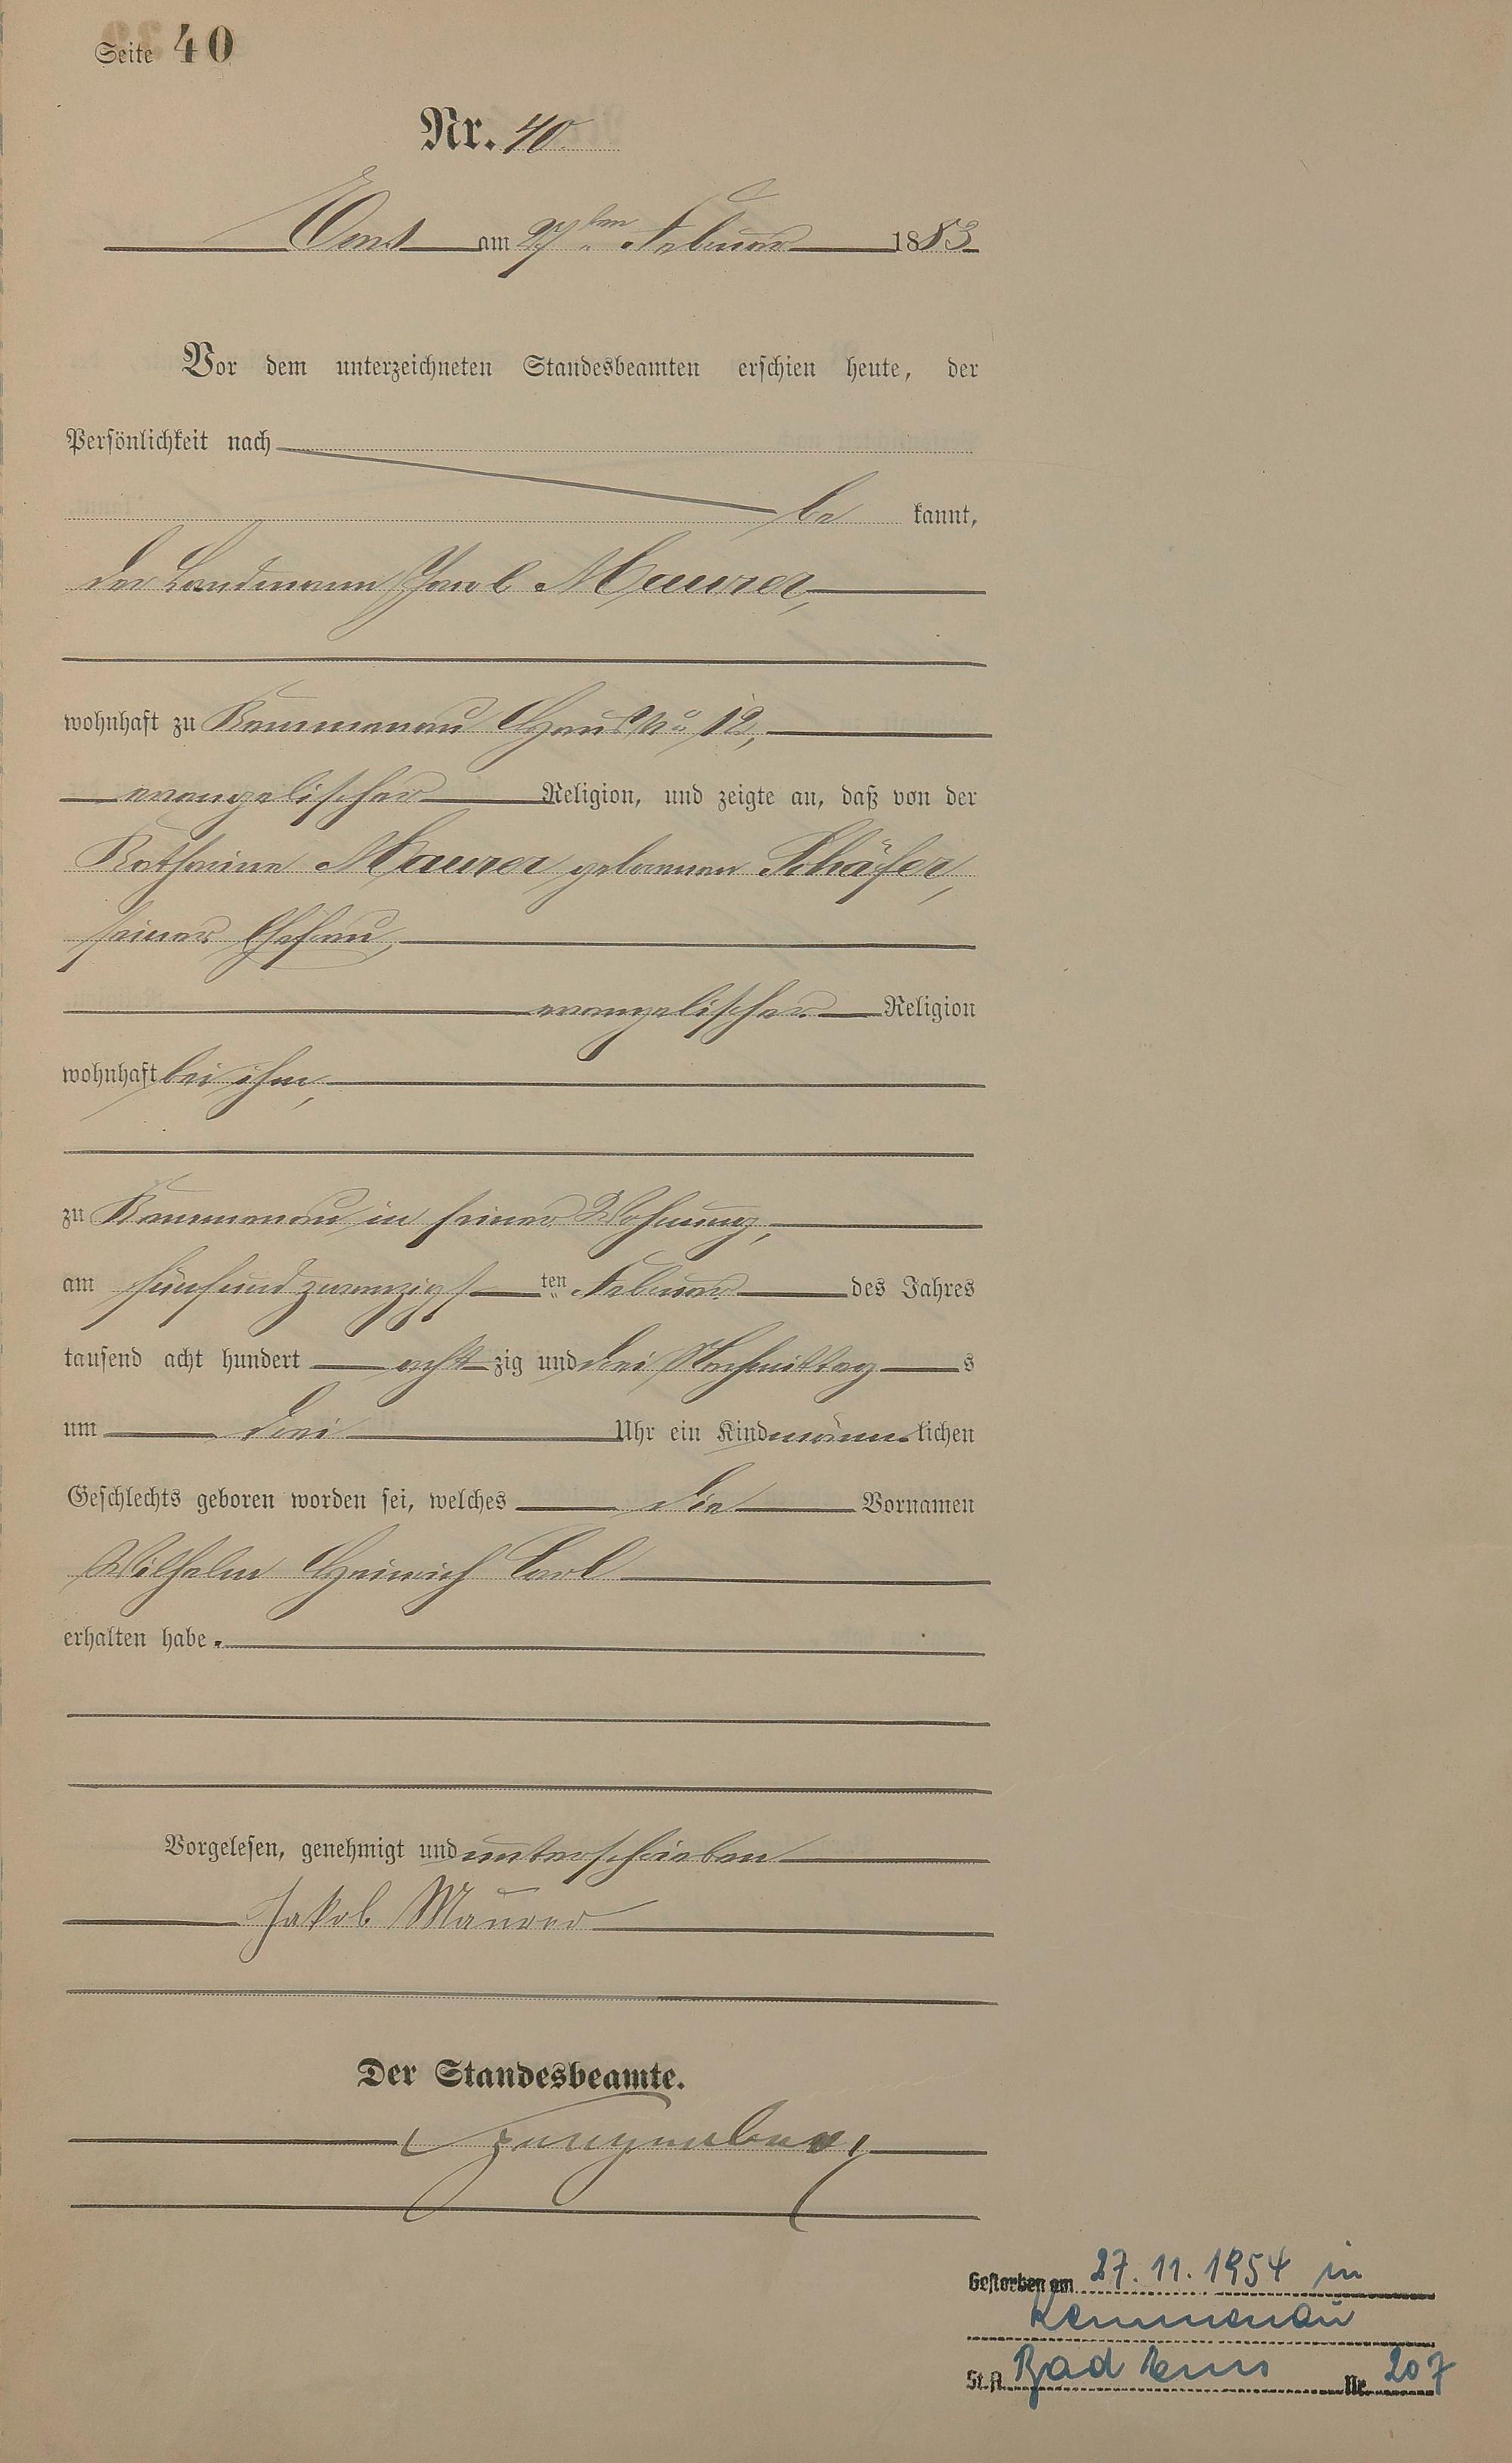 Seite 40
Nr. 40.
Ems am 27ten Februar 1883
Vor dem unterzeichneten Standesbeamten erschien heute, der
Persönlichkeit nach
be kannt,
der Landmann Jacob Maurer,
wohnhaft zu Kemmenau Haus No 12,
evangelischer Religion, und zeigte an, daß von der
Katharine Maurer geborenen Schäfer,
seiner Ehefrau,
evangelischer Religion
wohnhaft bei ihm,
zu Kemmenau in seiner Wohnung,
am fünfundzwanzigsten Februar des Jahres
tausend acht hundert achtzig und drei Nachmittags
um drei Uhr ein Kind männlichen
Geschlechts geboren worden sei, welches die Vornamen
Wilhelm Heinrich Carl
erhalten habe.
Vorgelesen, genehmigt und unterschrieben
Jakob Maurer
Der Standesbeamte.
Gestorben am 27.11.1954 in
Kemmenau
St.A. Bad Ems Nr. 207